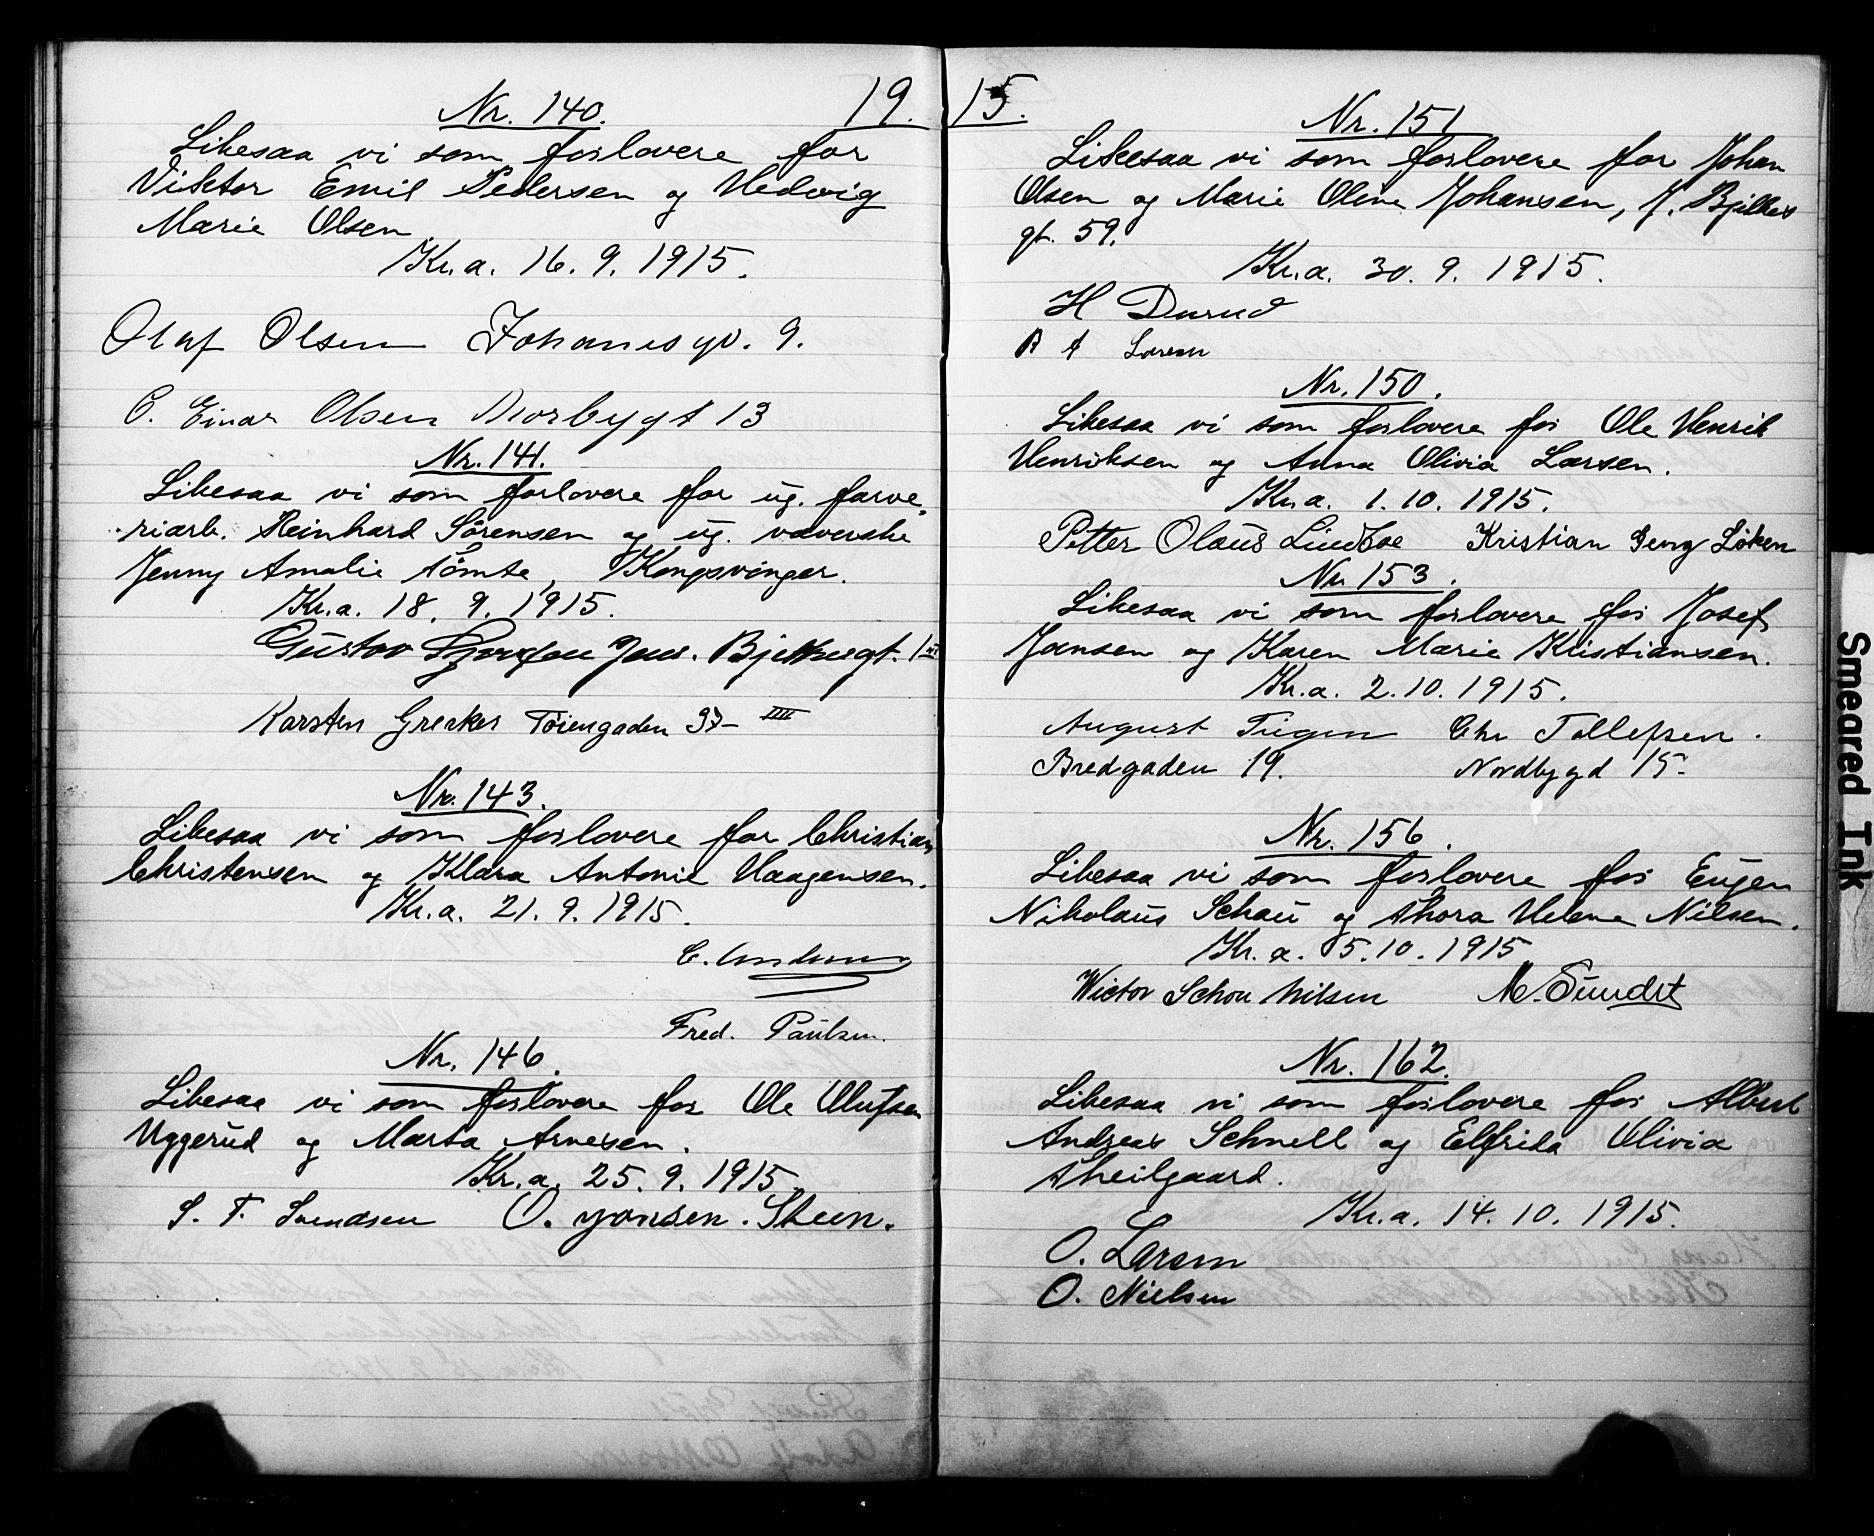 Nr. 140.
19.
Likesaa vi som forlovere for
Viktor Emil Pedersen og Hedvig
Marie Olsen
Kr.a. 16. 9. 1915.
Olaf Olsen 9.
C. Einar Olsen 13
Nr. 141.
Likesaa vi som forlovere for ug. farve-
riarb. Reinhard Sørensen og ug. væverske
Jenny Amalie Tømte, Kongsvinger.
Kr.a. 18. 9. 1915.
Gustav
Karsten Greaker Tøiengaden IIII
Nr. 143.
Likesaa vi som forlovere for Christian
Christensen og Klara Antonie Haagensen.
Kr.a. 21. 9. 1915.
Fred. Paulsen.
Nr. 146.
Likesaa vi som forlovere for Ole Olufsen
Uggerud og Marta Arnesen.
Kr.a. 25. 9. 1915.
S. T. Svendsen O. Jonsen. Steen.
15.
Nr. 151
Likesaa vi som forlovere for Johan
Olsen og Marie Oline Johansen, J. Bjelkes
gt. 59.
Kr.a. 30. 9. 1915.
H Durud
Larsen
Nr. 150.
Likesaa vi som forlovere for Ole Henrik
Henriksen og Anna Olivia Larsen.
Kr.a. 1. 10. 1915.
Petter Olaus Lindboe Kristian Georg Løken
Nr. 153.
Likesaa vi som forlovere for Josef
Jansen og Karen Marie Kristiansen.
Kr.a. 2. 10. 1915.
August Chr Tollefsen.
Bredgaden 19. Nordbygd 15.
Nr. 156.
Likesaa vi som forlovere for Eugen
Nikolaus Schau og Thora Helene Nilsen.
Kr. a. 5. 10. 1915
Wictor Schou Nilsen M. Sundet
Nr. 162.
Likesaa vi som forlovere for Albert
Andreas Schnell og Elfrida Olivia
Theilgaard.
Kr.a. 14. 10. 1915.
O. Larsen
O. Nielsen
Smeared Ink